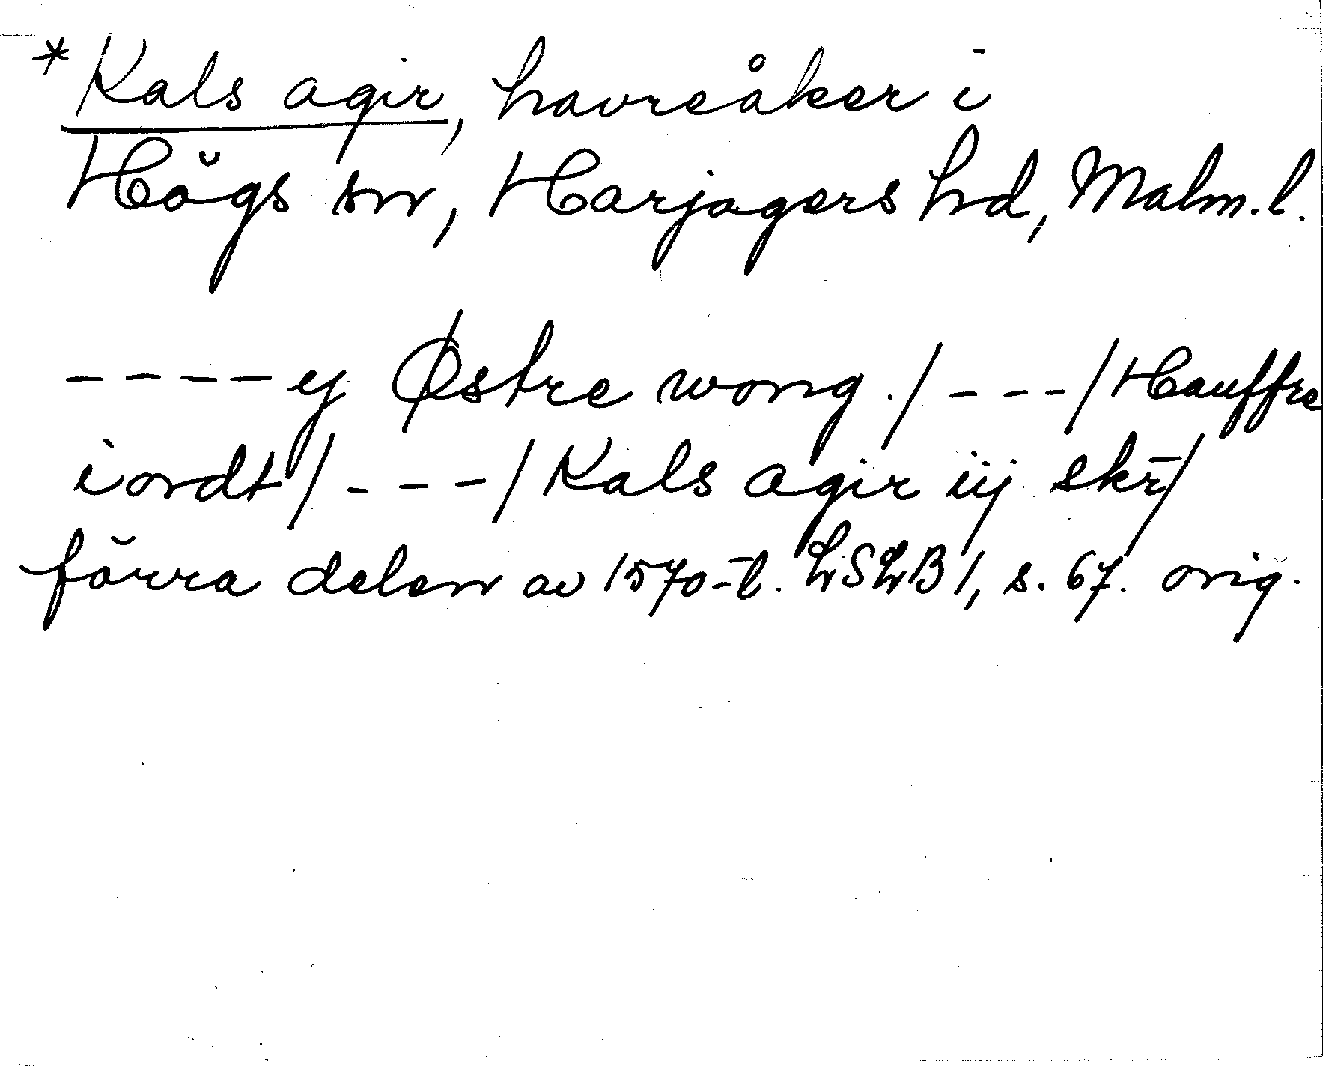 *Kals agir, havreåker i
Högs sn, Harjagers hd, Malm.l.
----y Østre wong./---/Hauffre
iordt/---/Kals agir iij skr̄/
förra delen av 1570-t. LSLB 1, s. 67. orig.